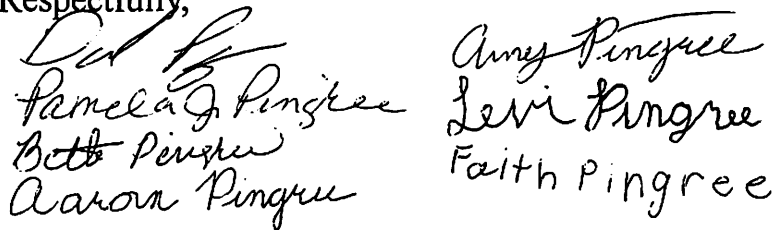 Respectfully,
Pamela J. Pingree
Beth Pingree
Aaron Pingree
Amy Pingree
Levi Pingree
Faith Pingree